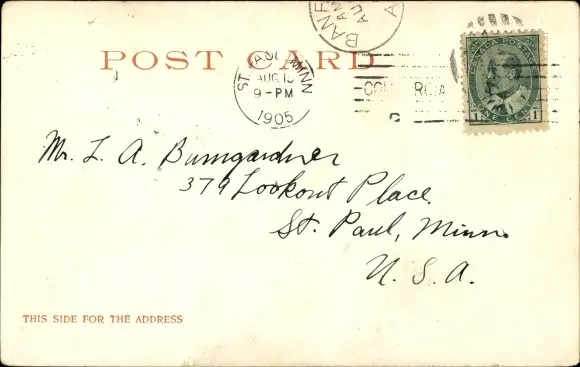 BANF
AM
AU
A
POST CARD
ST. PAUL MINN
AUG 1
9-PM
1905
CANADA POSTAGE
1 ONE CENT 1
Mr. L. A. Bumgardner
379 Lookout Place.
St. Paul, Minn.
U. S. A.
THIS SIDE FOR THE ADDRESS